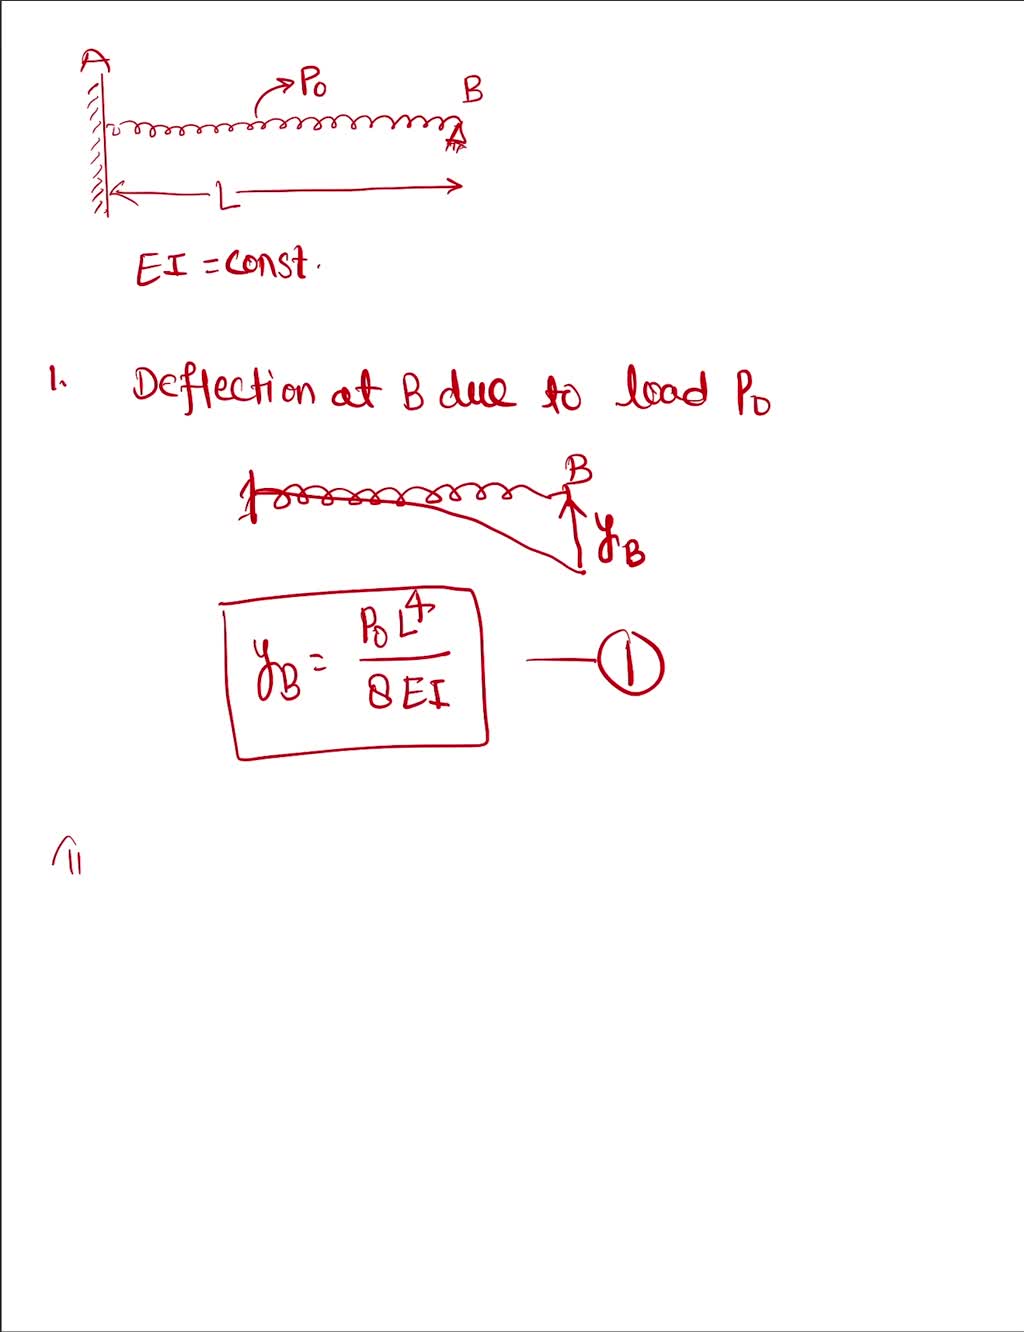 A
P₀
B
L
EI = const.
1. Deflection at B due to load P₀
B
y_B
y_B = P₀ L⁴ / 8 EI — ①